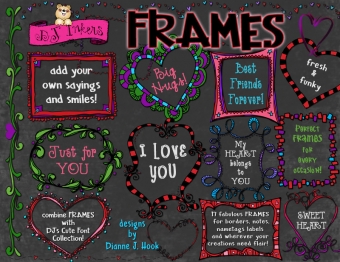 DJ Inkers
FRAMES
add your
own sayings
and smiles!
Big
Hugs!
Best
Friends
Forever!
fresh
&
funky
Just for
YOU
I LOVE
YOU
My
HEART
belongs
to
YOU
Perfect
FRAMES
for
every
occasion!
combine FRAMES
with
DJ's Cute Font
Collection!
designs
by
Dianne J. Hook
17 fabulous FRAMES
for borders, notes,
nametags labels
and wherever your
creations need flair!
SWEET
HEART